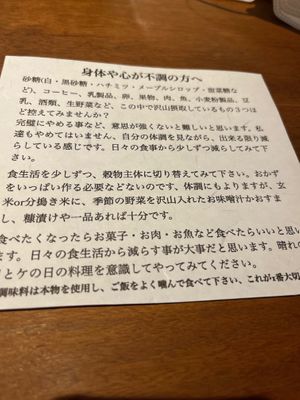 身体や心が不調の方へ
砂糖(白・黒砂糖・ハチミツ・メープルシロップ・甜菜糖な
ど)、コーヒー、乳製品、卵、果物、肉、魚、小麦粉製品、豆
乳、酒類、生野菜など、この中で沢山摂取しているもの3つほ
ど控えてみませんか?
完璧にやめる事など、意思が強くないと難しいと思います。私
達もやめてはいません。自分の体調を見ながら、出来る限り減
らしている感じです。日々の食事から少しずつ減らしてみて下
さい。
食生活を少しずつ、穀物主体に切り替えてみて下さい。おかず
をいっぱい作る必要などないのです、体調にもよりますが、玄
米or分搗き米に、季節の野菜を沢山入れたお味噌汁かおすま
し、糠漬けや一品あれば十分です。
食べたくなったらお菓子・お肉・お魚など食べたらいいと思い
ます。日々の食生活から減らす事が大事だと思います。晴れの
とケの日の料理を意識してやってみてください。
調味料は本物を使用し、ご飯をよく噛んで食べて下さい、これが1番大切